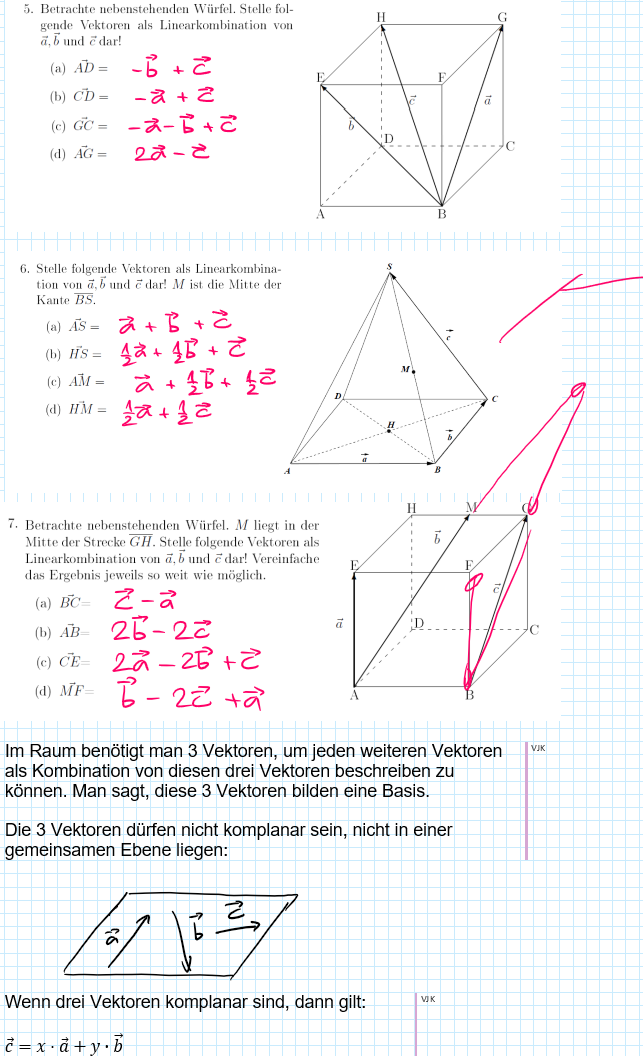 5. Betrachte nebenstehenden Würfel. Stelle fol-
gende Vektoren als Linearkombination von
a⃗, b⃗ und c⃗ dar!
(a) AD⃗ = -b⃗ + c⃗
(b) CD⃗ = -a⃗ + c⃗
(c) GC⃗ = -a⃗ - b⃗ + c⃗
(d) AG⃗ = 2a⃗ - c⃗
H G
E F
c⃗ a⃗
b⃗
D C
A B
6. Stelle folgende Vektoren als Linearkombina-
tion von a⃗, b⃗ und c⃗ dar! M ist die Mitte der
Kante B̅S̅.
(a) AS⃗ = a⃗ + b⃗ + c⃗
(b) HS⃗ = 1/2 a⃗ + 1/2 b⃗ + c⃗
(c) AM⃗ = a⃗ + 1/2 b⃗ + 1/2 c⃗
(d) HM⃗ = 1/2 a⃗ + 1/2 c⃗
S
c⃗
M
D C
H b⃗
a⃗
A B
7. Betrachte nebenstehenden Würfel. M liegt in der
Mitte der Strecke G̅H̅. Stelle folgende Vektoren als
Linearkombination von a⃗, b⃗ und c⃗ dar! Vereinfache
das Ergebnis jeweils so weit wie möglich.
(a) BC⃗ = c⃗ - a⃗
(b) AB⃗ = 2b⃗ - 2c⃗
(c) CE⃗ = 2a⃗ - 2b⃗ + c⃗
(d) MF⃗ = b⃗ - 2c⃗ + a⃗
H M G
b⃗
E F
c⃗
a⃗ D C
A B
Im Raum benötigt man 3 Vektoren, um jeden weiteren Vektoren
als Kombination von diesen drei Vektoren beschreiben zu
können. Man sagt, diese 3 Vektoren bilden eine Basis.
VJK
Die 3 Vektoren dürfen nicht komplanar sein, nicht in einer
gemeinsamen Ebene liegen:
a⃗ b⃗ c⃗
Wenn drei Vektoren komplanar sind, dann gilt:
VJK
c⃗ = x · a⃗ + y · b⃗